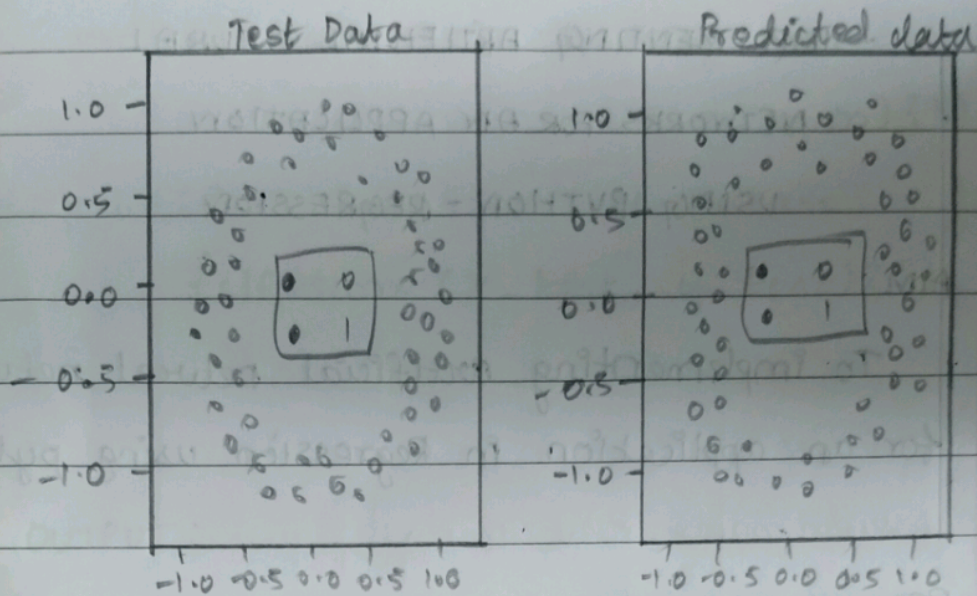 Test Data
1.0
0.5
0.0
-0.5
-1.0
0
1
-1.0 -0.5 0.0 0.5 1.0
Predicted data
1.0
0.5
0.0
-0.5
-1.0
0
1
-1.0 -0.5 0.0 0.5 1.0